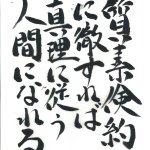 質素倹約
に徹すれば
真理に従う
人間になれる